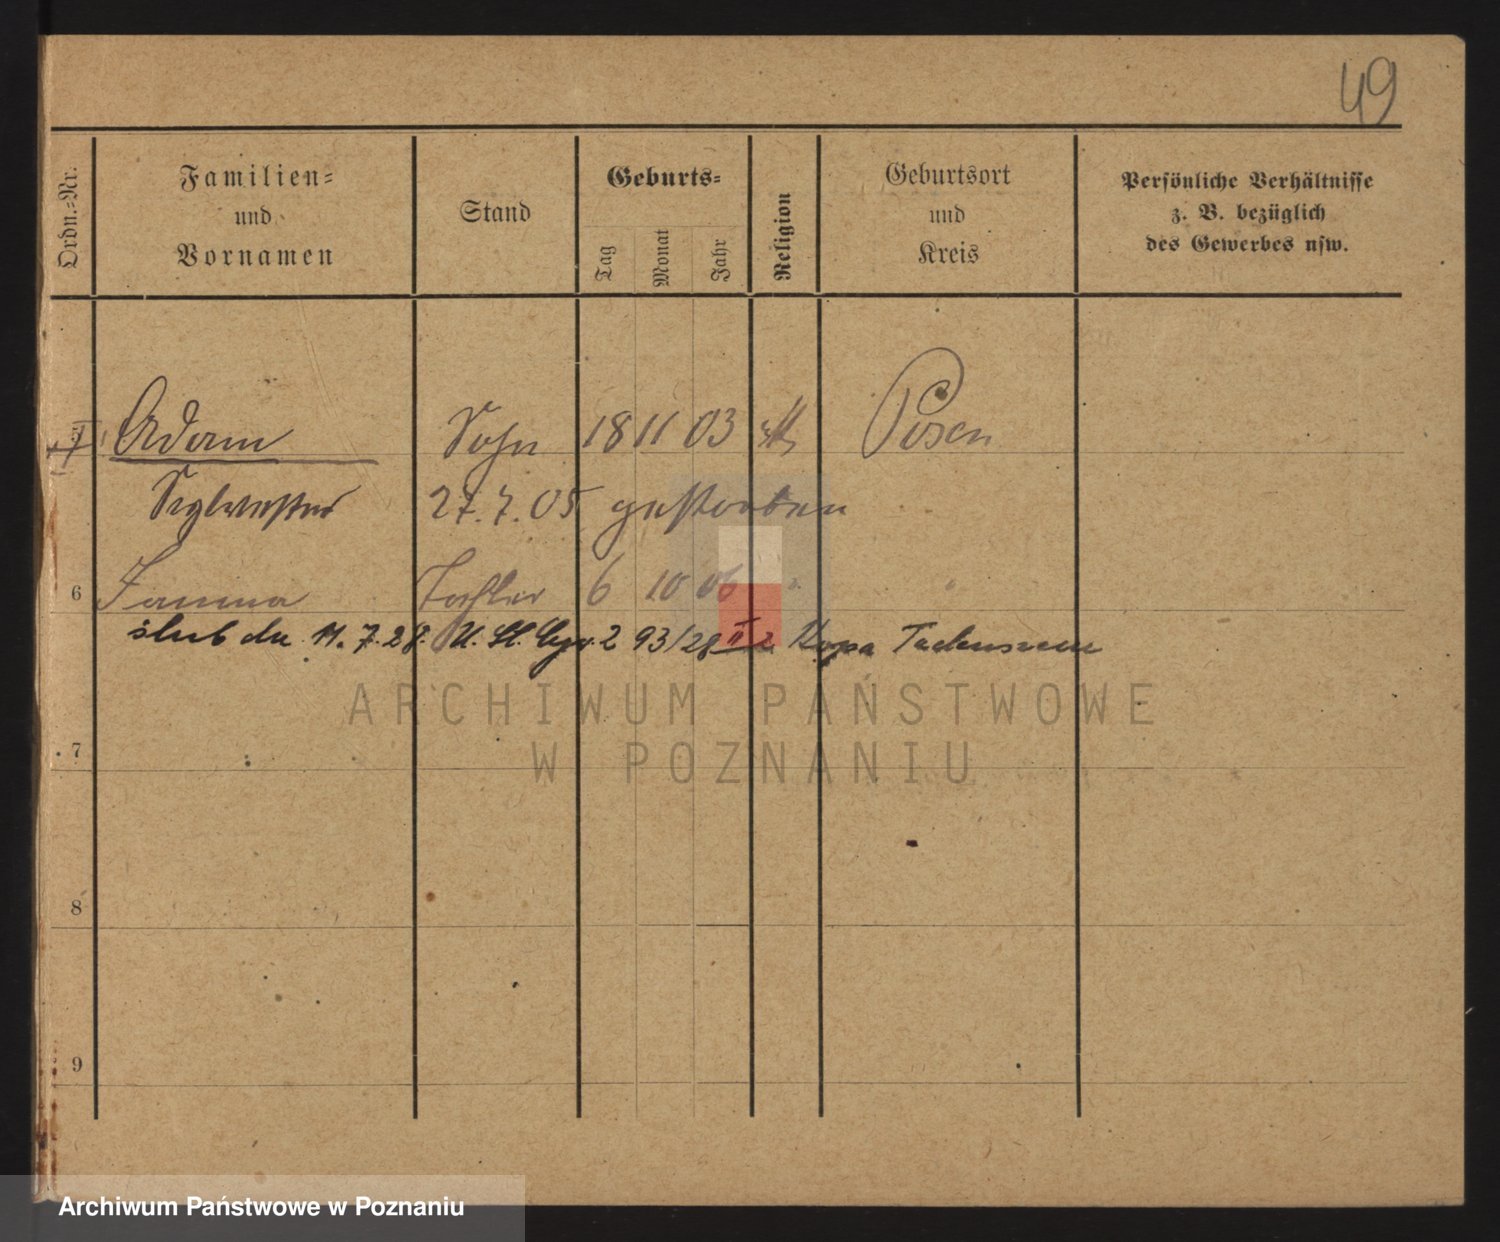 49
Ordn.-Nr.
Familien-
und
Vornamen
Stand
Geburts-
Tag
Monat
Jahr
Religion
Geburtsort
und
Kreis
Persönliche Verhältnisse
z. B. bezüglich
des Gewerbes usw.
Adam Sohn 18 11 03 Posen
Sylvester 27. 7. 05 gestorben
6 Janina Tochter 6 10 06 " "
ślub dn. 11. 7. 28. U. St. 2 93/28 II 2 Kopa Tadeuszem
ARCHIWUM PAŃSTWOWE
W POZNANIU
7
8
9
Archiwum Państwowe w Poznaniu